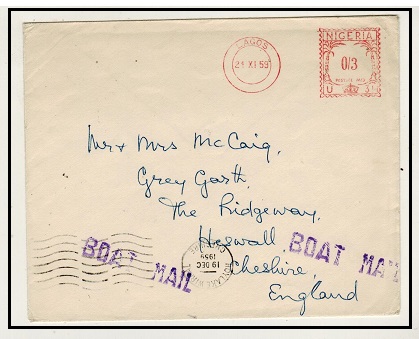 LAGOS
23 XI 59
NIGERIA
0/3
POSTAGE PAID
U 3
Mr & Mrs McCaig,
Grey Garth,
The Ridgeway,
Heswall
Cheshire,
England
BOAT MAIL
19 DEC
1959
BOAT MAI